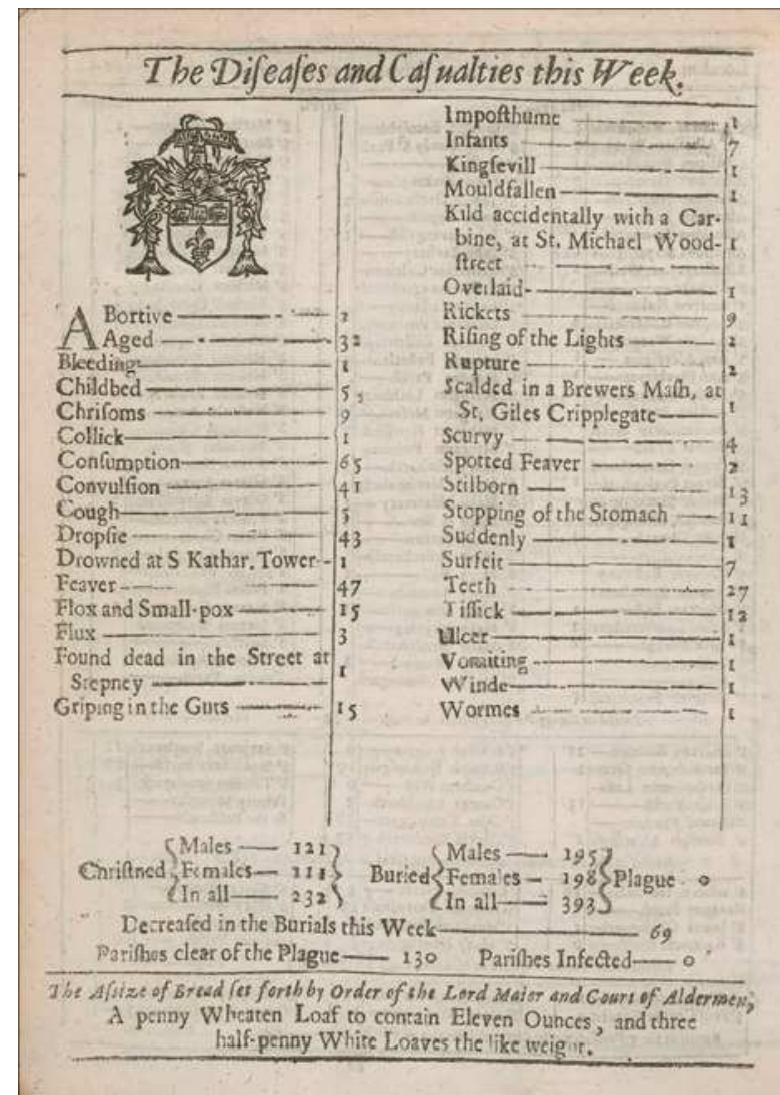 The Diſeaſes and Caſualties this Week.
ABortive — 2
Aged — 32
Bleeding — 1
Childbed — 5
Chriſoms — 9
Collick — 1
Conſumption — 65
Convulſion — 41
Cough — 5
Dropſie — 43
Drowned at S Kathar. Tower — 1
Feaver — 47
Flox and Small-pox — 15
Flux — 3
Found dead in the Street at
Stepney — 1
Griping in the Guts — 15
Impoſthume — 1
Infants — 7
Kingſevill — 1
Mouldfallen — 1
Kild accidentally with a Car-
bine, at St. Michael Wood- 1
ſtreet —
Overlaid — 1
Rickets — 9
Riſing of the Lights — 2
Rupture — 2
Scalded in a Brewers Maſh, at
St. Giles Cripplegate — 1
Scurvy — 4
Spotted Feaver — 2
Stilborn — 13
Stopping of the Stomach — 11
Suddenly — 1
Surfeit — 7
Teeth — 27
Tiſſick — 12
Ulcer — 1
Vomiting — 1
Winde — 1
Wormes — 1
Chriſtned
Males — 121
Females — 111
In all — 232
Buried
Males — 195
Females — 198
In all — 393
Plague — 0
Decreaſed in the Burials this Week — 69
Pariſhes clear of the Plague — 130 Pariſhes Infected — 0
The Aſsize of Bread ſet forth by Order of the Lord Maior and Court of Aldermen,
A penny Wheaten Loaf to contain Eleven Ounces, and three
half-penny White Loaves the like weight.